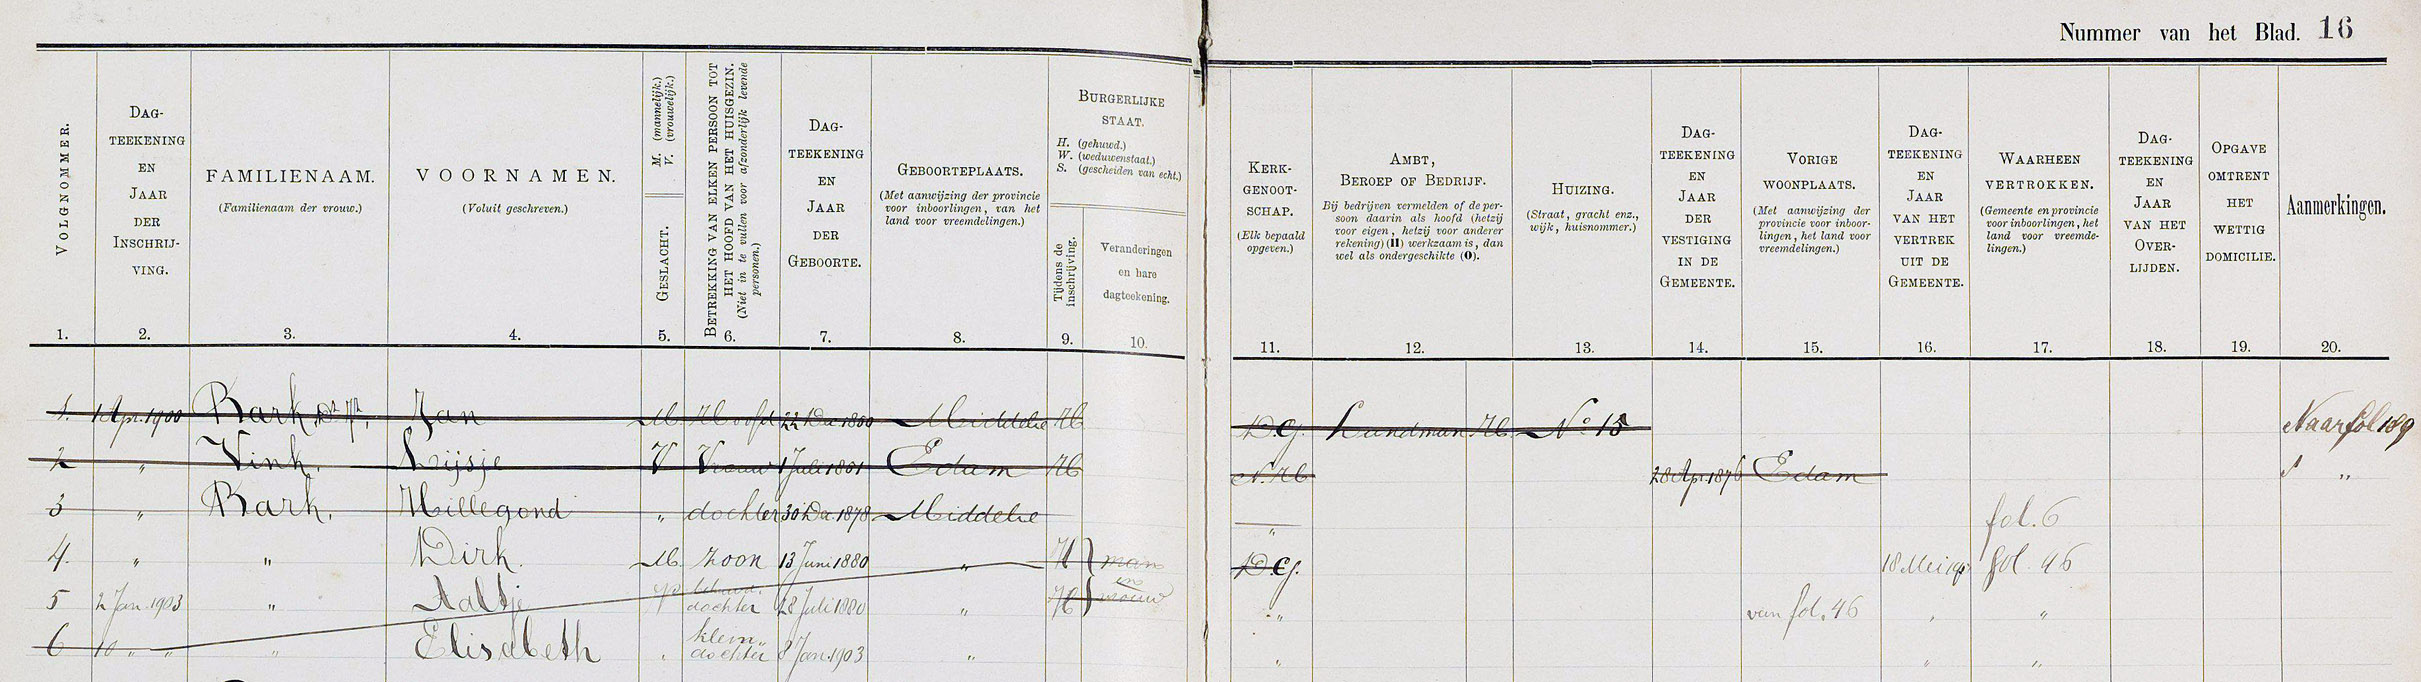 Nummer van het Blad. 16
VOLGNOMMER.
DAG-
TEEKENING
EN
JAAR
DER
INSCHRIJ-
VING.
FAMILIENAAM.
(Familienaam der vrouw.)
VOORNAMEN.
(Voluit geschreven.)
M. (mannelijk.)
V. (vrouwelijk.)
GESLACHT.
BETREKKING VAN ELKEN PERSOON TOT
HET HOOFD VAN HET HUISGEZIN.
(Niet in te vullen voor afzonderlijk levende
personen.)
DAG-
TEEKENING
EN
JAAR
DER
GEBOORTE.
GEBOORTEPLAATS.
(Met aanwijzing der provincie
voor inboorlingen, van het
land voor vreemdelingen.)
BURGERLIJKE
STAAT.
H. (gehuwd.)
W. (weduwenstaat.)
S. (gescheiden van echt.)
Tijdens de
inschrijving.
Veranderingen
en hare
dagteekening.
KERK-
GENOOT-
SCHAP.
(Elk bepaald
opgeven.)
AMBT,
BEROEP OF BEDRIJF.
Bij bedrijven vermelden of de per-
soon daarin als hoofd (hetzij
voor eigen, hetzij voor anderer
rekening) (H) werkzaam is, dan
wel als ondergeschikte (O).
HUIZING.
(Straat, gracht enz.,
wijk, huisnommer.)
DAG-
TEEKENING
EN
JAAR
DER
VESTIGING
IN DE
GEMEENTE.
VORIGE
WOONPLAATS.
(Met aanwijzing der
provincie voor inboor-
lingen, het land voor
vreemdelingen.)
DAG-
TEEKENING
EN
JAAR
VAN HET
VERTREK
UIT DE
GEMEENTE.
WAARHEEN
VERTROKKEN.
(Gemeente en provincie
voor inboorlingen, het
land voor vreemde-
lingen.)
DAG-
TEEKENING
EN
JAAR
VAN HET
OVER-
LIJDEN.
OPGAVE
OMTRENT
HET
WETTIG
DOMICILIE.
Aanmerkingen.
1. 2. 3. 4. 5. 6. 7. 8. 9. 10. 11. 12. 13. 14. 15. 16. 17. 18. 19. 20.
1. 1 Apr. 1900 Bark, Jan M. Hoofd 22 1850 Middelie H D.G. Landman H. No 15 Naar fol 189
2 " Vink. Lijsje V Vrouw 1 Juli 1851 Edam H N.H 28 Apr. 1876 Edam "
3 " Bark. Hillegond " dochter 30 Dec. 1878 Middelie " fol. 6
4. " " Dirk. M. zoon 13 Juni 1880 " H man D.G. 18 Mei fol. 46
en
5 2 Jan. 1903 " Aaltje dochter 28 Juli 1880 " H vrouw " van fol. 46 " "
6 10 " " " Elisabeth " klein-
dochter 8 Jan. 1903 " " " "